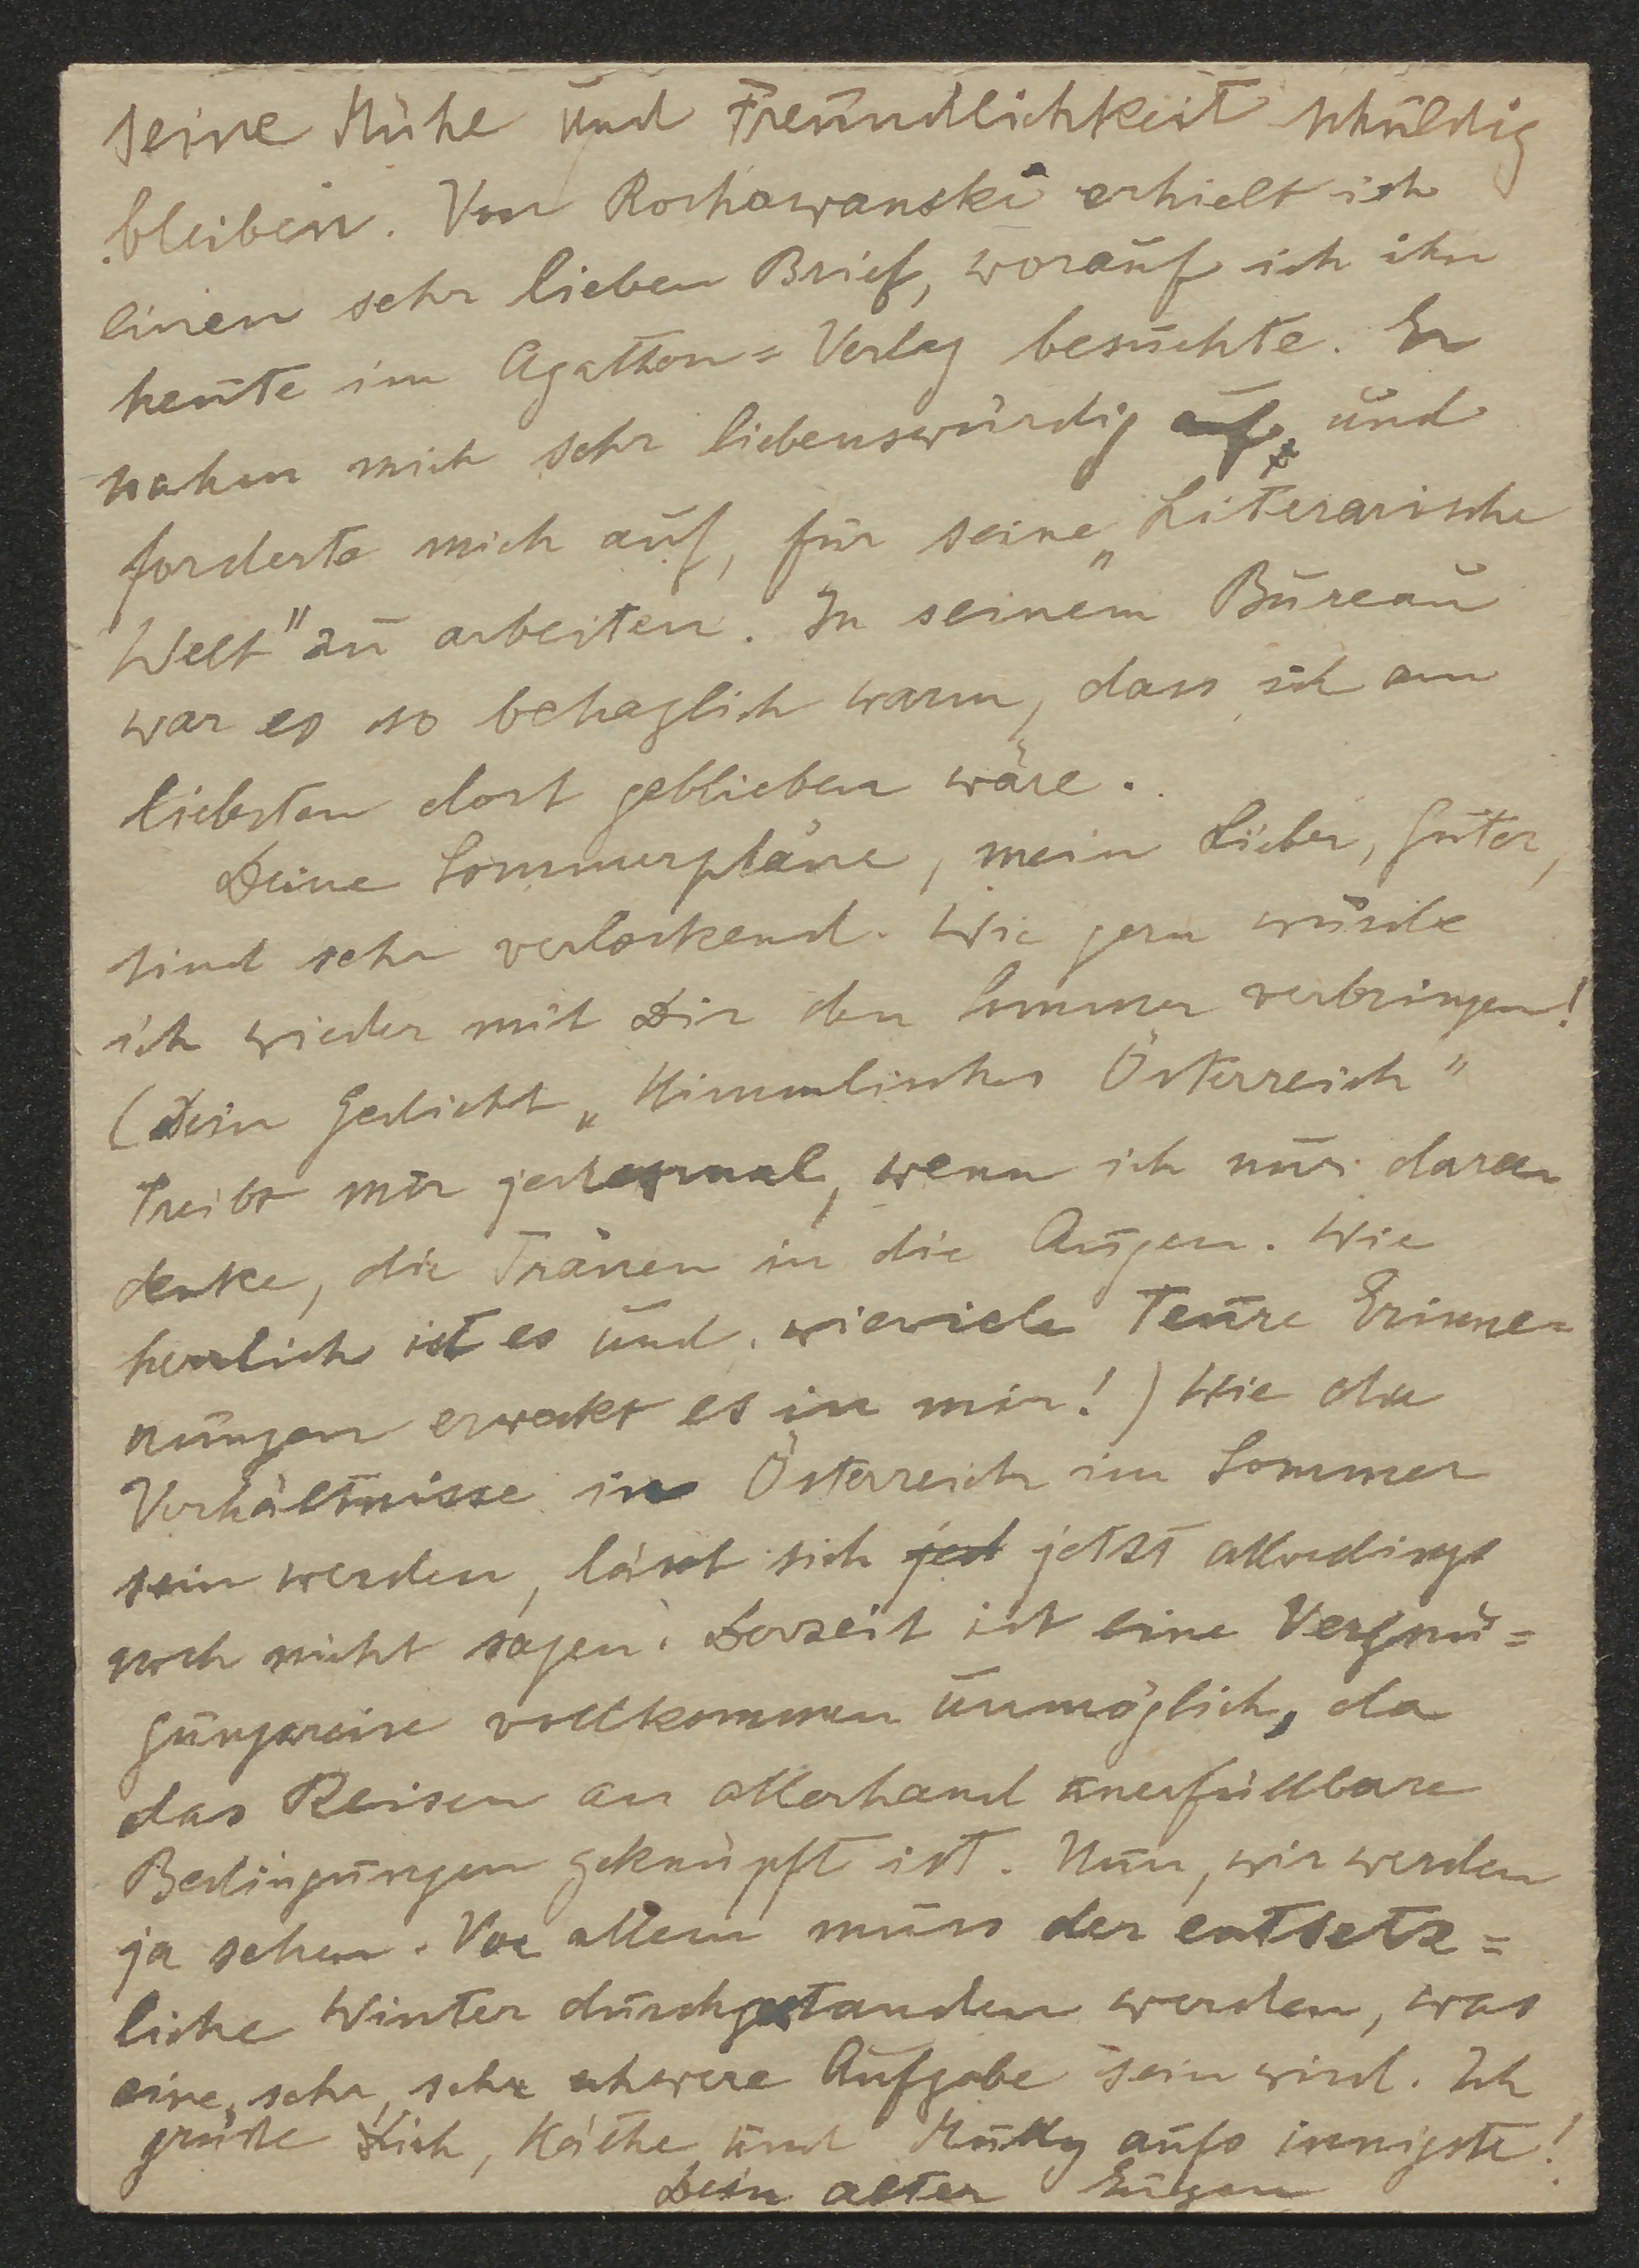 seine Mühe und Freundlichkeit schuldig
bleiben. Von Rochowanski erhielt ich
einen sehr lieben Brief, worauf ich ihn
heute im Agathon=Verlag besuchte. Er
nahm mich sehr liebenswürdig auf, und
forderte mich auf, für seine „Literarische
Welt" zu arbeiten. In seinem Bureau
war es so behaglich warm, dass ich am
liebsten dort geblieben wäre.
Deine Sommerpläne, mein Lieber, Guter,
sind sehr verlockend. Wie gern würde
ich wieder mit Dir den Sommer verbringen!
(Dein Gedicht „Himmlisches Österreich"
treibt mir jedesmal, wenn ich nur daran
denke, die Tränen in die Augen. Wie
herrlich ist es und wieviele teure Erinne=
rungen erweckt es in mir!) Wie die
Verhältnisse in Österreich im Sommer
sein werden, lässt sich jed jetzt allerdings
noch nicht sagen. Derzeit ist eine Vergnü=
gungsreise vollkommen unmöglich, da
das Reisen an allerhand unerfüllbare
Bedingungen geknüpft ist. Nun, wir werden
ja sehen. Vor allem muss der entsetz=
liche Winter durchgestanden werden, was
eine sehr, sehr schwere Aufgabe sein wird. Ich
grüße Dich, Käthe und aufs innigste!
Dein alter Eugen